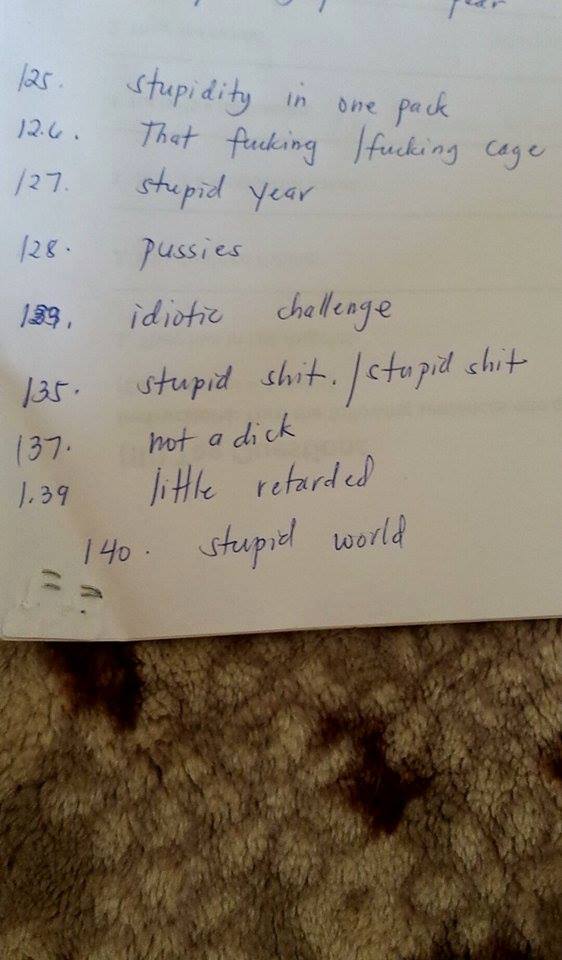 year
125. stupidity in one pack
12.6. That fucking /fucking cage
127. stupid year
128. pussies
idiotic challenge
135. stupid shit. /stupid shit
137. not a dick
1.39 little retarded
140. stupid world